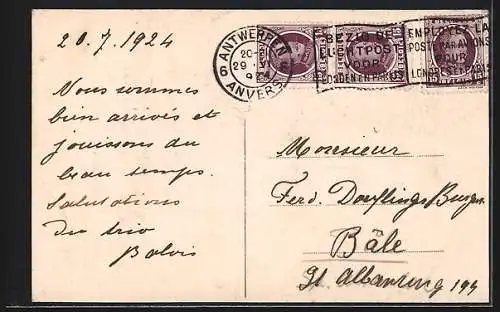 20.7.1924
Nous sommes
bien arrivés et
jouissons du
beau temps.
Salutations
du trio
ANTWERPEN
6 6
ANVERS
LUCHTPOST
VOOR
LONDEN EN PARIJS
EMPLOYEZ LA
POSTE PAR AVIONS
POUR
LONDRES ET PARIS
Monsieur
Ferd.
Bâle
St. Albanring 199